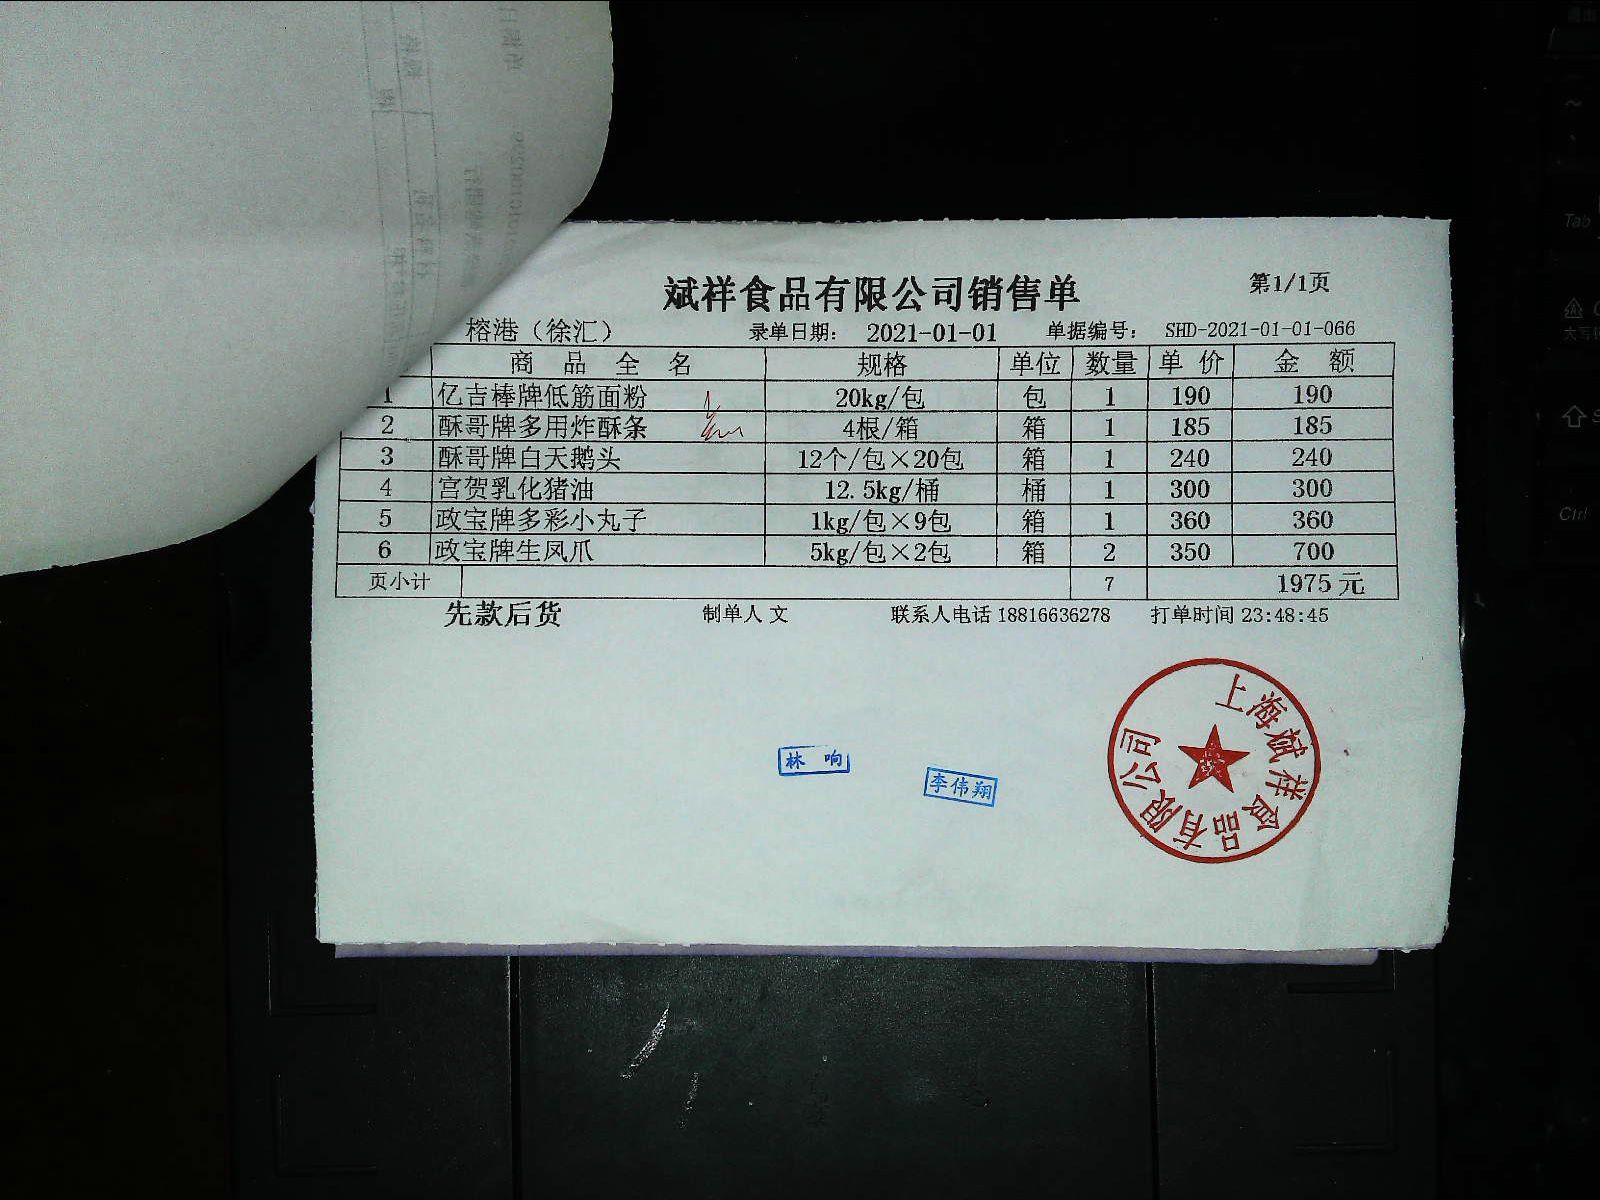 斌祥食品有限公司销售单 第1/1页
榕港（徐汇） 录单日期： 2021-01-01 单据编号： SHD-2021-01-01-066
商品全名 规格 单位 数量 单价 金额
1 亿吉棒牌低筋面粉 20kg/包 包 1 190 190
2 酥哥牌多用炸酥条 4根/箱 箱 1 185 185
3 酥哥牌白天鹅头 12个/包×20包 箱 1 240 240
4 宫贺乳化猪油 12.5kg/桶 桶 1 300 300
5 政宝牌多彩小丸子 1kg/包×9包 箱 1 360 360
6 政宝牌生凤爪 5kg/包×2包 箱 2 350 700
页小计 7 1975元
先款后货 制单人 文 联系人电话 18816636278 打单时间 23:48:45
上海斌祥食品有限公司
林响
李伟翔
Tab
Ctrl